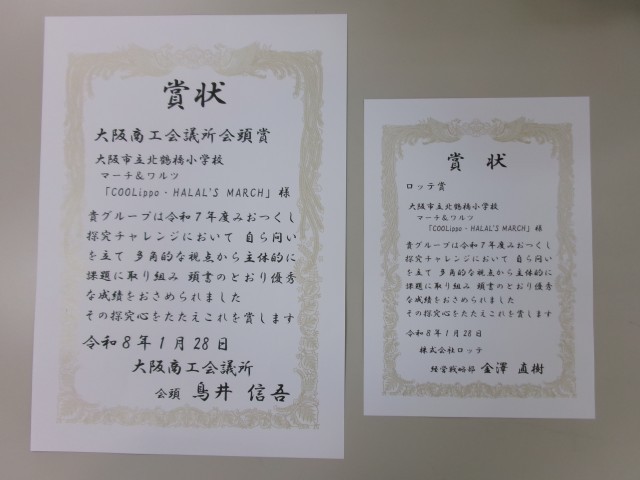 賞状
大阪商工会議所会頭賞
大阪市立北鶴橋小学校
マーチ&ワルツ
「COOLippo・HALAL'S MARCH」様
貴グループは令和7年度みおつくし
探究チャレンジにおいて 自ら問い
を立て 多角的な視点から主体的に
課題に取り組み 頭書のとおり優秀
な成績をおさめられました
その探究心をたたえこれを賞します
令和8年1月28日
大阪商工会議所
会頭 鳥井 信吾
賞状
ロッテ賞
大阪市立北鶴橋小学校
マーチ&ワルツ
「COOLippo・HALAL'S MARCH」様
貴グループは令和7年度みおつくし
探究チャレンジにおいて 自ら問い
を立て 多角的な視点から主体的に
課題に取り組み 頭書のとおり優秀
な成績をおさめられました
その探究心をたたえこれを賞します
令和8年1月28日
株式会社ロッテ
経営戦略部 金澤 直樹